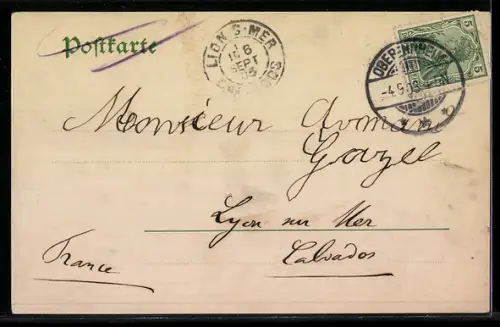 Postkarte
LION S-MER
6
SEPT
CALVADOS
-4.9.03
5
5
Monsieur Arman
Gazel
Lyon sur Mer
Calvados
France